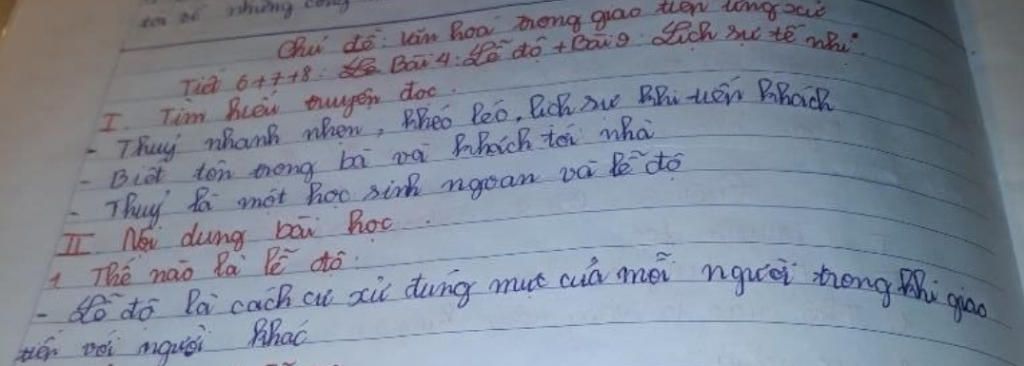 tới số những công
Chủ đề: Văn hoá trong giao tiếp ứng xử
Tiết 6+7+8: Bài 4: Lễ độ + Bài 9: Lịch sự tế nhị
I Tìm hiểu truyện đọc.
- Thuỷ nhanh nhẹn, khéo léo, lịch sự khi tiếp khách
- Biết tôn trọng bà và khách tới nhà
- Thuỷ là một học sinh ngoan và lễ độ
II Nội dung bài học.
1 Thế nào là lễ độ.
- Lễ độ là cách cư xử đúng mực của mỗi người trong khi giao
tiếp với người khác